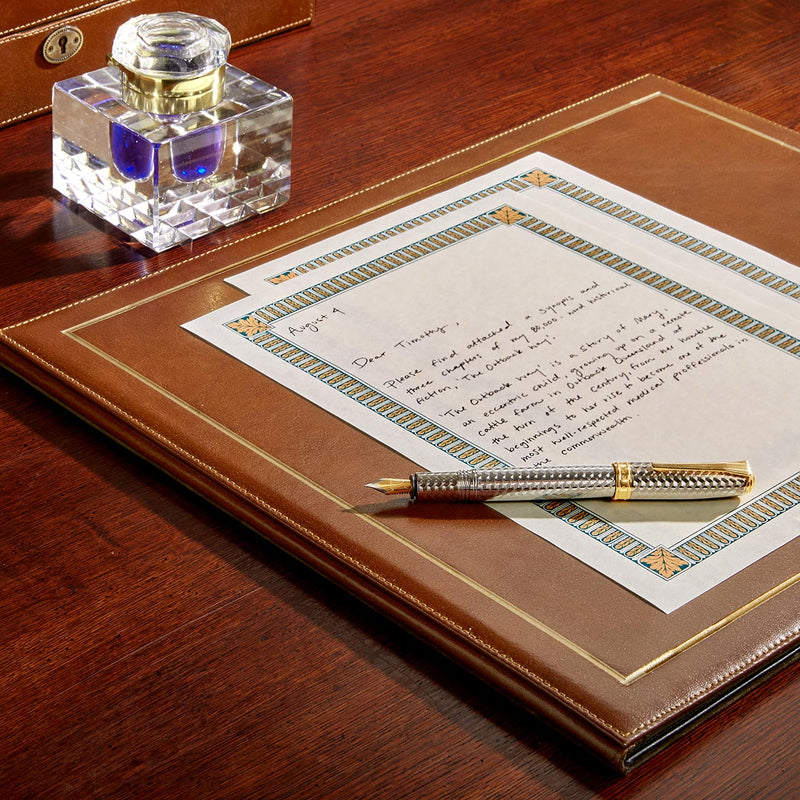 August 4
Dear Timothy,
Please find attached a synopsis and
three chapters of my 80,000 word historical
fiction, 'The Outback Way'.
'The Outback Way' is a story of Mary,
an eccentric child growing up on a remote
cattle farm in Outback Queensland at
the turn of the century. From her humble
beginnings to her rise to become one of the
most well-respected medical proffessionals in
the commonwealth.